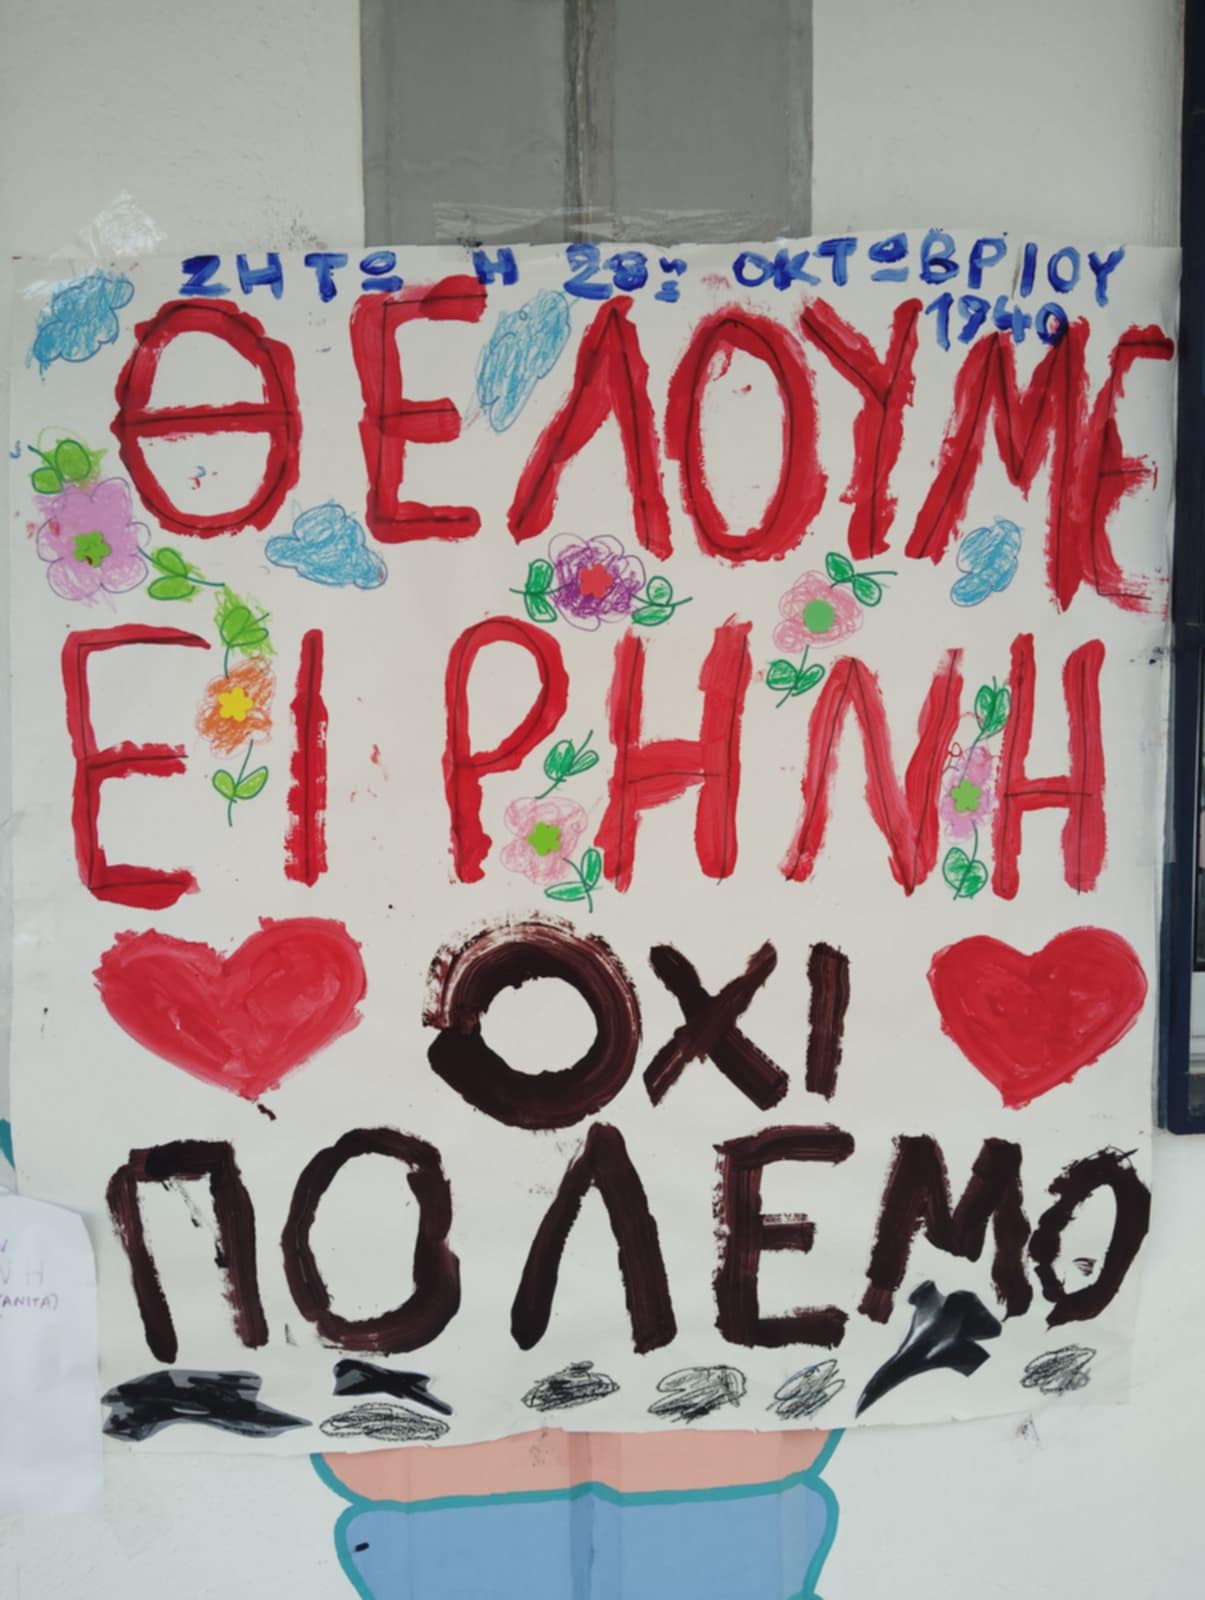 ΖΗΤΩ Η 28η ΟΚΤΩΒΡΙΟΥ
1940
ΘΕΛΟΥΜΕ
ΕΙΡΗΝΗ
ΟΧΙ
ΠΟΛΕΜΟ